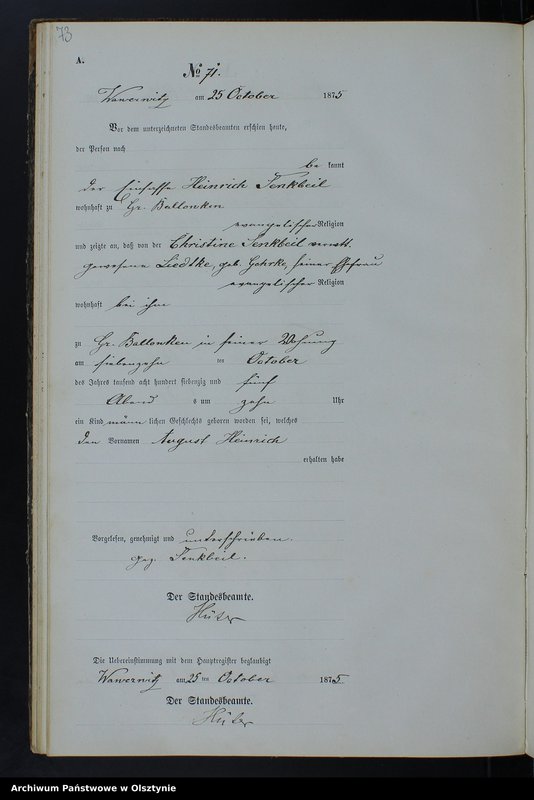 73
A.
No 71.
Wawerwitz am 25 October 1875
Vor dem unterzeichneten Standesbeamten erschien heute,
der Person nach
be kannt
der Einsasse Heinrich Senkbeil
wohnhaft zu Gr. Ballowken
evangelischer Religion
und zeigte an, daß von der Christine Senkbeil verwitt.
gewesene Liedtke, geb. Gohrke, seiner Ehefrau
evangelischer Religion
wohnhaft bei ihm
zu Gr. Ballowken in seiner Wohnung
am siebenzehn ten October
des Jahres tausend acht hundert siebenzig und fünf
Abend s um zehn Uhr
ein Kind männ lichen Geschlechts geboren worden sei, welches
den Vornamen August Heinrich
erhalten habe
Vorgelesen, genehmigt und unterschrieben.
gez. Senkbeil.
Der Standesbeamte.
Hüter
Die Uebereinstimmung mit dem Hauptregister beglaubigt
Wawerwitz am 25 ten October 1875.
Der Standesbeamte.
Hüter
Archiwum Państwowe w Olsztynie